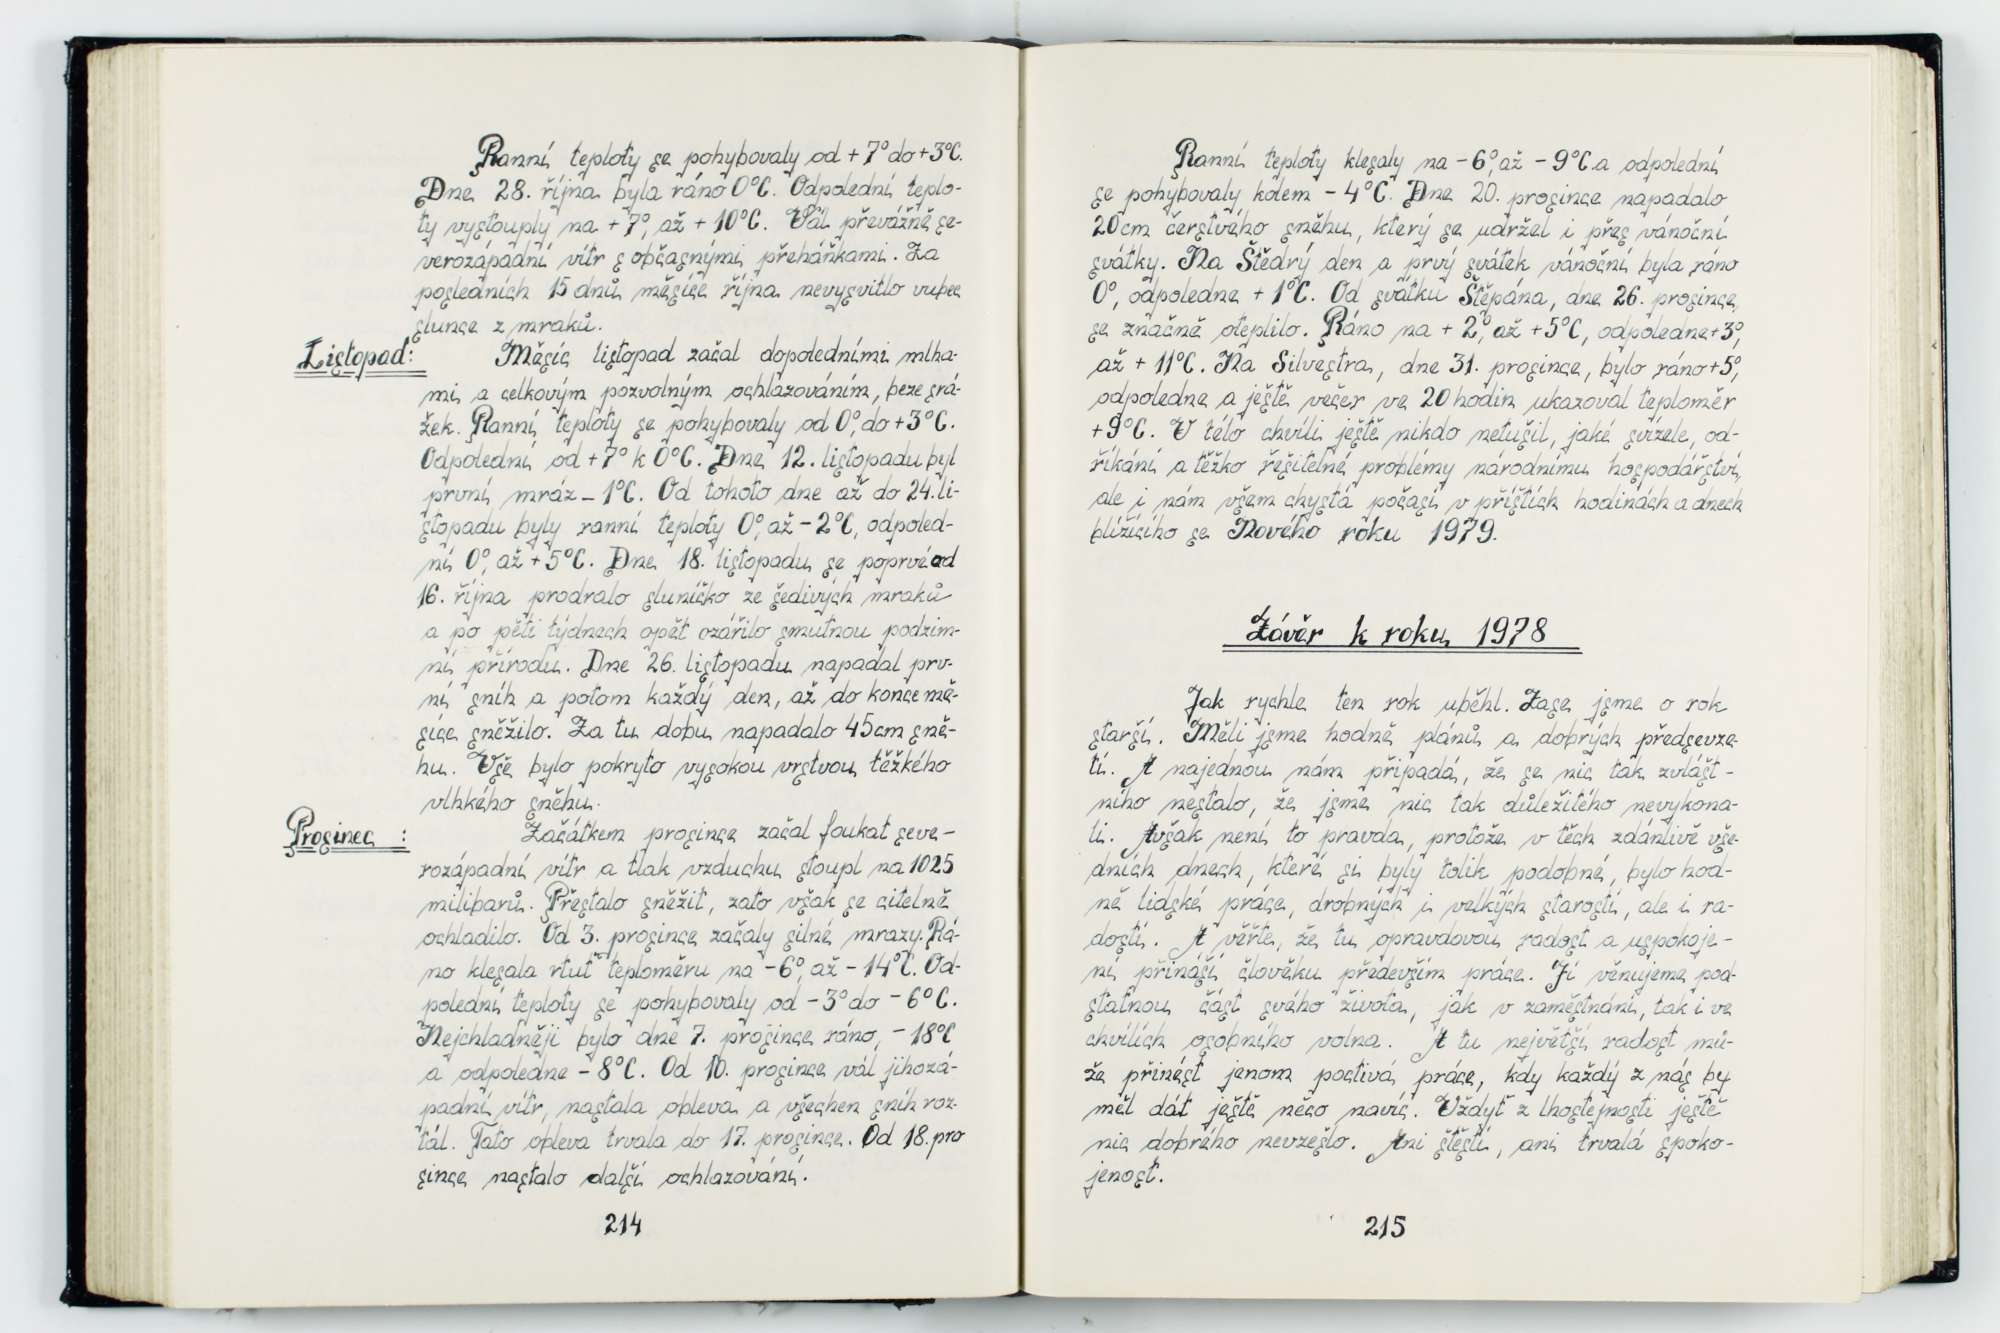 Ranní teploty se pohybovaly od + 7° do +3°C.
Dne 28. října byla ráno 0°C. Odpolední teplo-
ty vystouply na + 7°, až + 10°C. Vál převážně se-
verozápadní vítr s občasnými přeháňkami. Za
posledních 15 dnů měsíce října nevysvitlo vubec
slunce z mraků.
Listopad: Měsíc listopad začal dopoledními mlha-
mi a celkovým pozvolným ochlazováním, beze srá-
žek. Ranní teploty se pohybovaly od 0°, do +3°C.
Odpolední od +7° k 0°C. Dne 12. listopadu byl
první mráz – 1°C. Od tohoto dne až do 24. li-
stopadu byly ranní teploty 0°, až – 2°C, odpoled-
ní 0°, až + 5°C. Dne 18. listopadu se poprvé od
16. října prodralo sluníčko ze šedivých mraků
a po pěti týdnech opět ozářilo smutnou podzim-
ní přírodu. Dne 26. listopadu napadal prv-
ní sníh a potom každý den, až do konce mě-
síce sněžilo. Za tu dobu napadalo 45 cm sně-
hu. Vše bylo pokryto vysokou vrstvou těžkého
vlhkého sněhu.
Prosinec : Začátkem prosince začal foukat seve-
rozápadní vítr a tlak vzduchu stoupl na 1025
milibarů. Přestalo sněžit, zato však se citelně
ochladilo. Od 3. prosince začaly silné mrazy. Rá-
no klesala rtuť teploměru na – 6°, až – 14°C. Od-
polední teploty se pohybovaly od – 3° do – 6°C.
Nejchladněji bylo dne 7. prosince ráno, – 18°C
a odpoledne – 8°C. Od 10. prosince vál jihozá-
padní vítr, nastala obleva a všechen sníh roz-
tál. Tato obleva trvala do 17. prosince. Od 18. pro
since nastalo další ochlazování.
214
Ranní teploty klesaly na – 6°, až – 9°C a odpolední
se pohybovaly kolem – 4°C. Dne 20. prosince napadalo
20 cm čerstvého sněhu, který se udržel i přes vánoční
svátky. Na Štědrý den a prvý svátek vánoční byla ráno
0°, odpoledne + 1°C. Od svátku Štěpána, dne 26. prosince,
se značně oteplilo. Ráno na + 2°, až +5°C, odpoledne +3°,
až + 11°C. Na Silvestra, dne 31. prosince, bylo ráno +5°,
odpoledne a ještě večer ve 20 hodin ukazoval teploměr
+9°C. V této chvíli ještě nikdo netušil, jaké svízele, od-
říkání a těžko řešitelné problémy národnímu hospodářství,
ale i nám všem chystá počasí v příštích hodinách a dnech
blížícího se Nového roku 1979.
Závěr k roku 1978
Jak rychle ten rok uběhl. Zase jsme o rok
starší. Měli jsme hodně plánů a dobrých předsevze-
tí. A najednou nám připadá, že se nic tak zvlášt-
ního nestalo, že jsme nic tak důležitého nevykona-
li. Avšak není to pravda, protože v těch zdánlivě vše-
dních dnech, které si byly tolik podobné, bylo hod-
ně lidské práce, drobných i velkých starostí, ale i ra-
dostí. A věřte, že tu opravdovou radost a uspokoje-
ní přináší člověku především práce. Jí věnujeme pod-
statnou část svého života, jak v zaměstnání, tak i ve
chvílích osobního volna. A tu největší radost mů-
že přinést jenom poctivá práce, kdy každý z nás by
měl dát ještě něco navíc. Vždyť z lhostejnosti ještě
nic dobrého nevzešlo. Ani štěstí, ani trvalá spoko-
jenost.
215